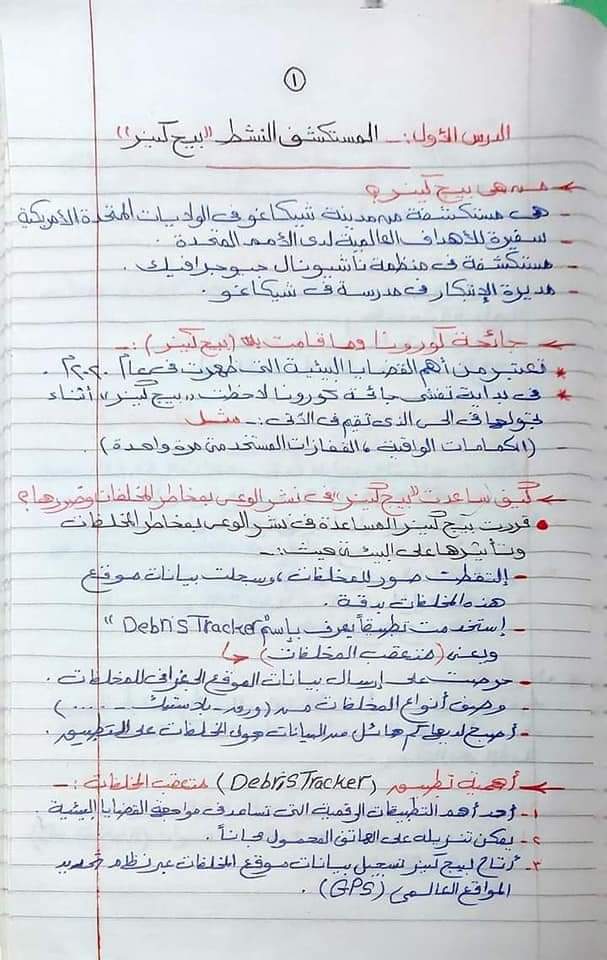 ١
الدرس الأول:- المستكشف النشط "بيج كينز"
من هى بيج كينز؟
- هى مستكشفة من مدينة شيكاغو فى الولايات المتحدة الأمريكية
- سفيرة للأهداف العالمية لدى الأمم المتحدة .
- مستكشفة فى منظمة ناشيونال جيوجرافيك .
- مديرة الإبتكار فى مدرسة فى شيكاغو .
جائحة كورونا وما قامت به (بيج كينز) :-
* تعتبر من أهم القضايا البيئية التى ظهرت فى عام ٢٠٢٠م .
* فى بداية تفشى جائحة كورونا لاحظت "بيج كينز" أثناء
تجولها فى الحى الذى تقيم فى :- مثل
- (الكمامات الواقية ، القفازات المستخدمة من مرة واحدة) .
كيف ساعدت "بيج كينز" فى نشر الوعى بمخاطر المخلفات وضررها؟
• قررت بيج كينز المساعدة فى نشر الوعى بمخاطر المخلفات
وتأثيرها على البيئة حيث :-
- إلتقطت صور للمخلفات ، وسجلت بيانات موقع
هذه المخلفات بدقة .
- إستخدمت تطبيقاً يعرف بإسم Debris Tracker"
ويعنى (متعقب المخلفات)
- حرصت على إرسال بيانات الموقع الجغرافى للمخلفات .
- وصف أنواع المخلفات من (ورق - بلاستيك - .....)
- أصبح لديها كم هائل من البيانات حول المخلفات على التطبيق .
أهمية تطبيق (Debris Tracker) متعقب المخلفات :-
١- أحد أهم التطبيقات الرقمية التى تساعد فى مواجهة القضايا البيئية .
٢- يمكن تنزيله على الهاتف المحمول مجاناً .
٣- أتاح لبيج كينز تسجيل بيانات موقع المخلفات عبر نظام تحديد
المواقع العالمى (GPS) .